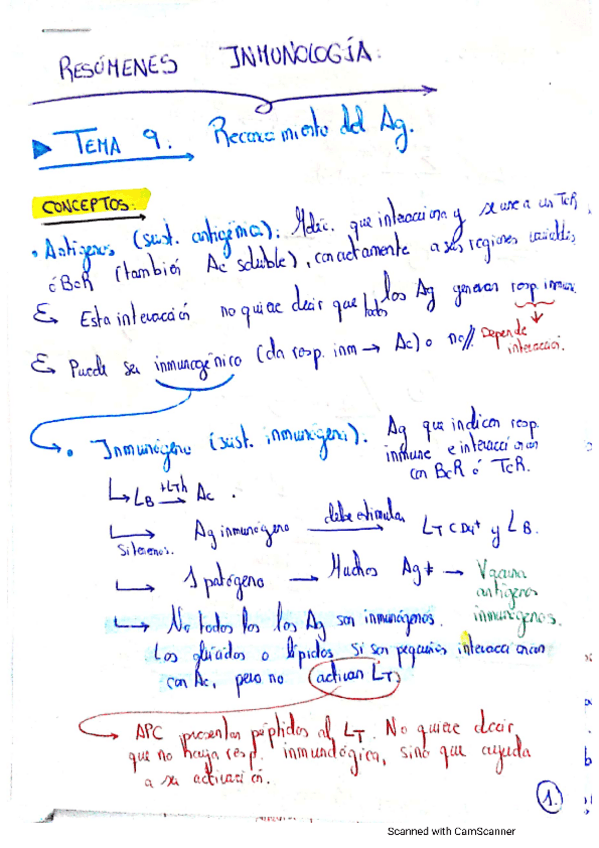 RESÚMENES INMUNOLOGÍA.
TEMA 9. Reconocimiento del Ag.
CONCEPTOS.
• Antígenos (sust. antigénica). Molec. que interacciona y se une a un TcR
ó BcR (también Ac soluble), concretamente a sus regiones variables
Esta interacción no quiere decir que todos los Ag generan resp. inmun.
Puede ser inmunogénico (da resp. inm → Ac) o no// Depende
interacci.
• Inmunógeno (sust. inmunógeni). Ag que inducen resp.
inmune e interaccionan
con BcR ó TcR.
↳ LB +LTh → Ac.
↳ Ag inmunógeno debe estimular → LT CD4+ y LB.
Si tenemos.
↳ 1 patógeno → Muchos Ag ≠ → Vacuna
antígenos
inmunógenos.
↳ No todos los los Ag son inmunógenos.
Los glúcidos o lípidos si son pequeños interaccionan
con Ac, pero no activan LT
APC presentan péptidos al LT. No quiere decir
que no haya resp. inmunológica, sino que ayuda
a su activación.
1.
Scanned with CamScanner